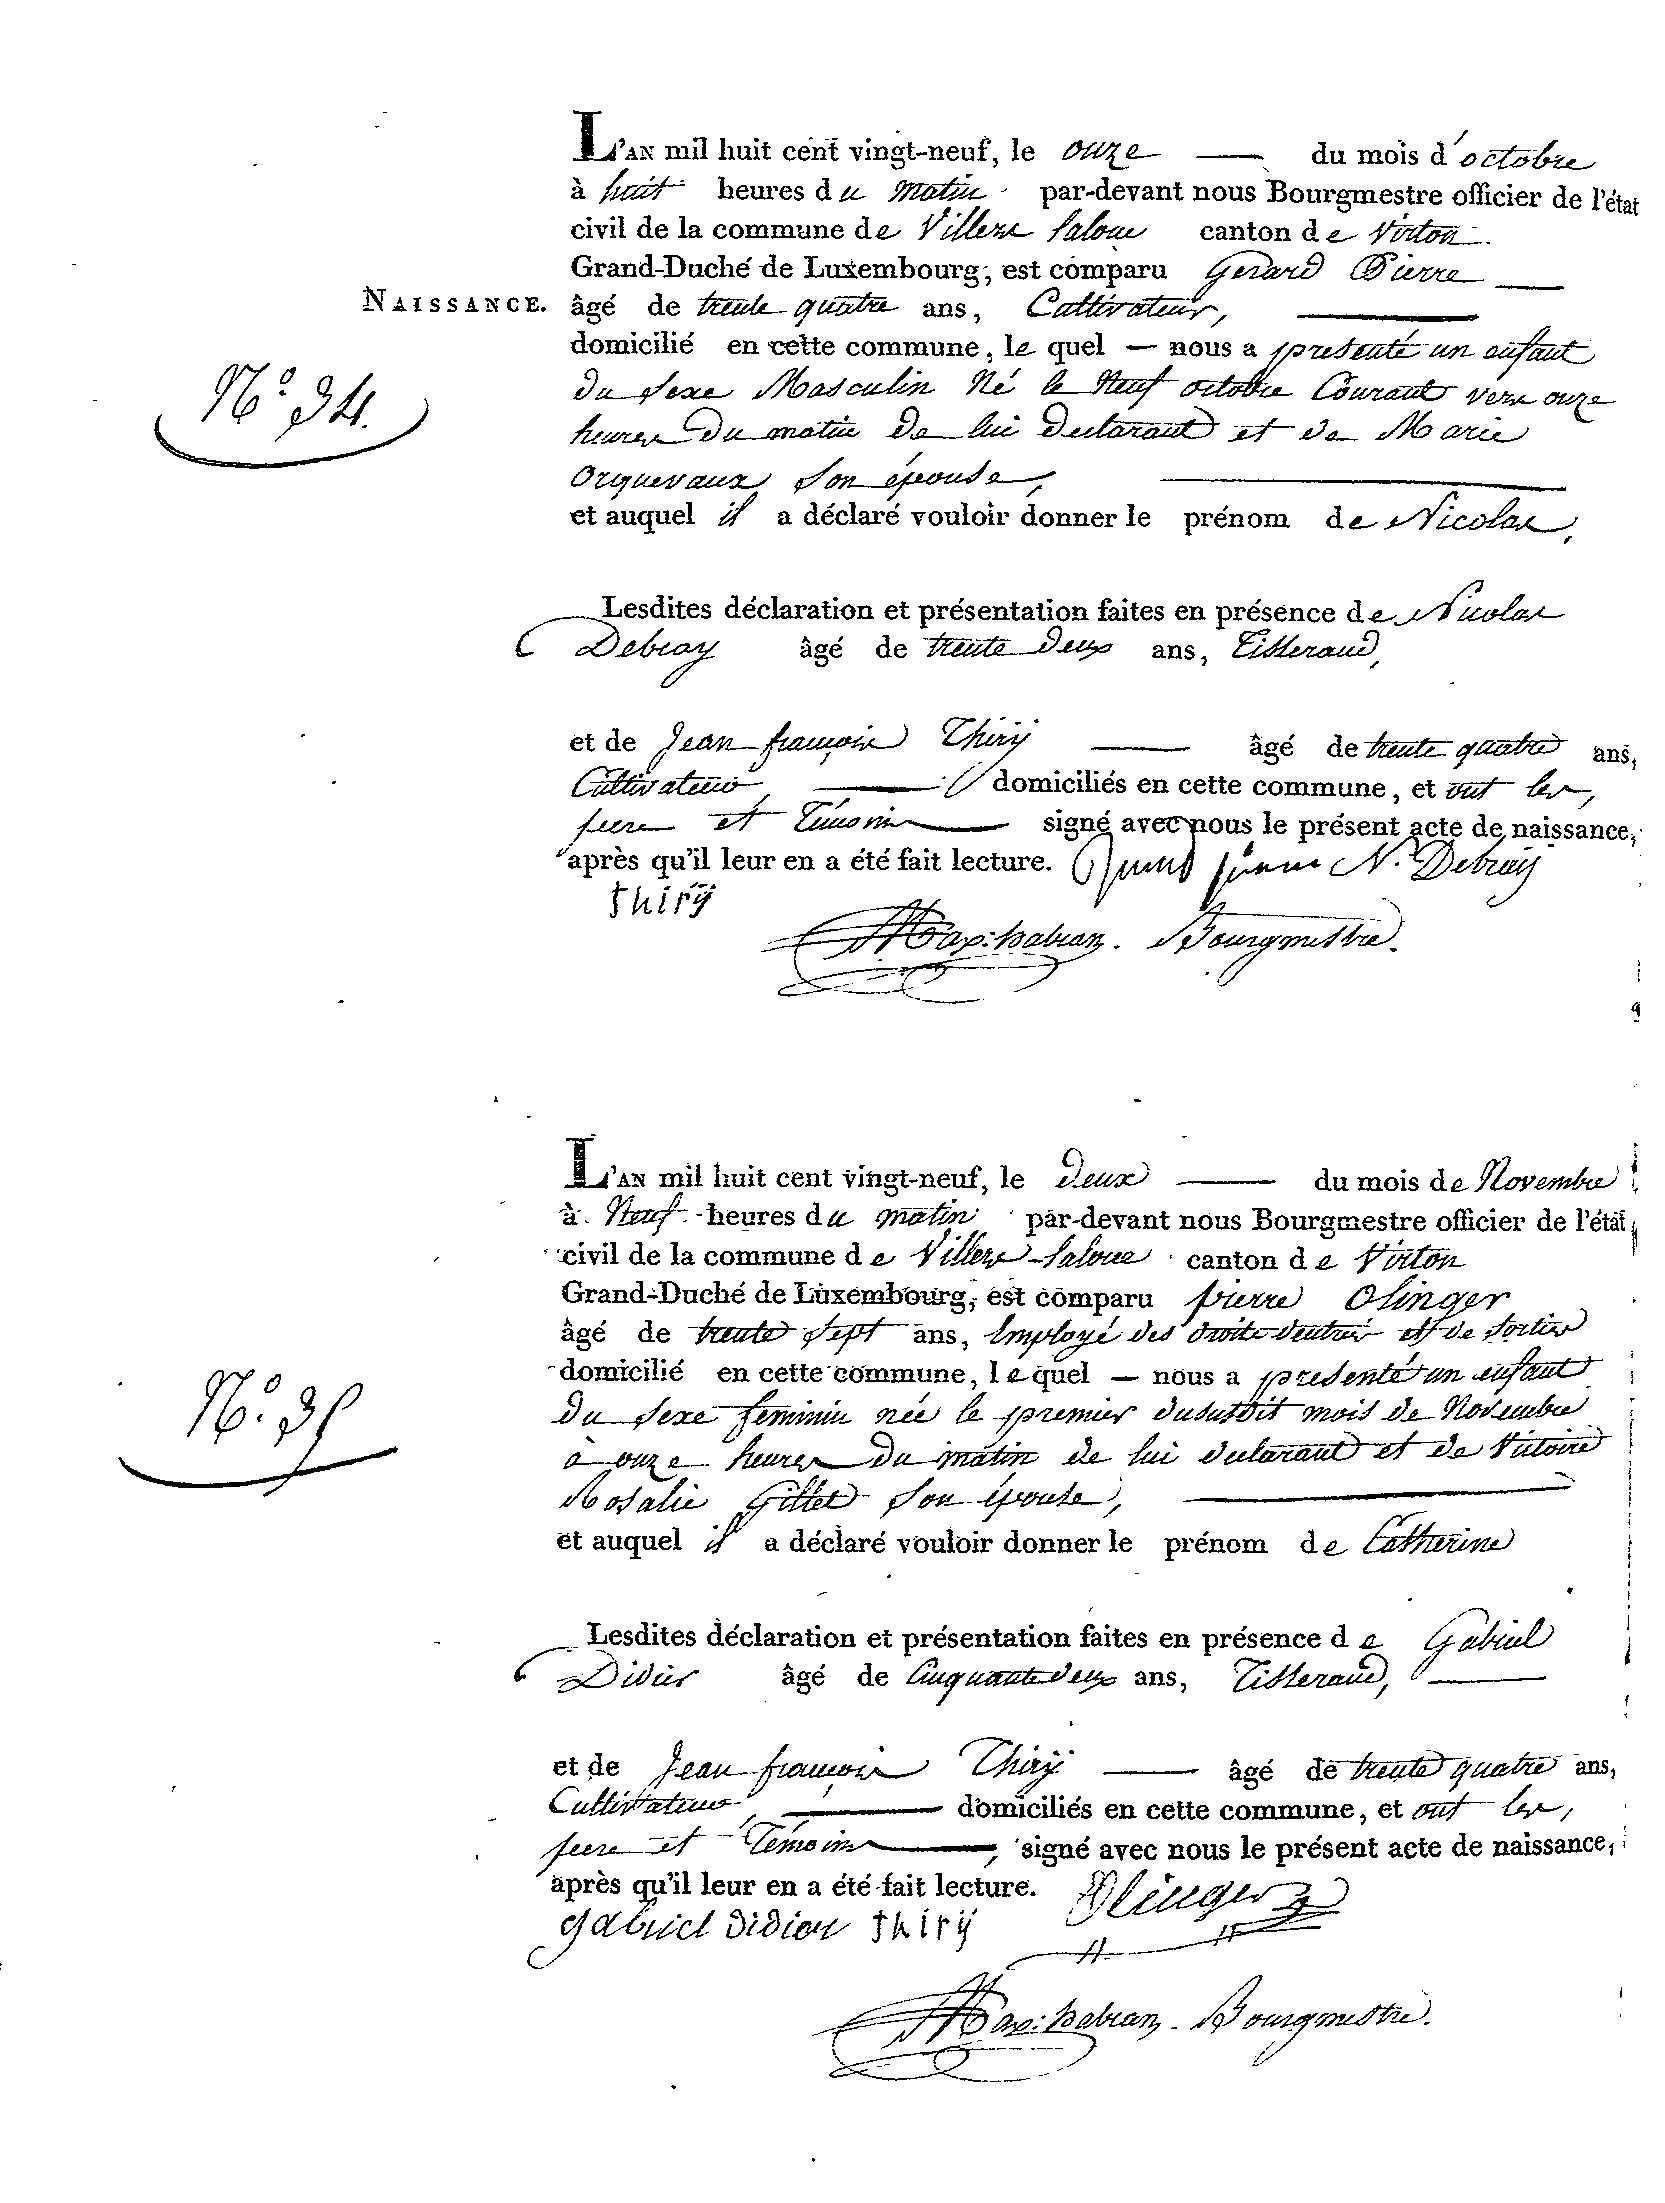 L'AN mil huit cent vingt-neuf, le onze du mois d'octobre
à huit heures du matin par-devant nous Bourgmestre officier de l'état
civil de la commune de Villers laloue canton de Virton
Grand-Duché de Luxembourg, est comparu Gerard Pierre
NAISSANCE. âgé de trente quatre ans, Cultivateur,
domicilié en cette commune, le quel — nous a presenté un enfant
N.º 34.
du sexe Masculin Né le Neuf octobre Courant vers onze
heures du matin de lui declarant et de Marie
Orquevaux son épouse,
et auquel il a déclaré vouloir donner le prénom de Nicolas,
Lesdites déclaration et présentation faites en présence de Nicolas
Debray âgé de trente deux ans, Tisserand,
et de Jean françois Thirÿ âgé de trente quatre ans,
Cultivateur, domiciliés en cette commune, et ont les,
pere et Témoins signé avec nous le présent acte de naissance,
après qu'il leur en a été fait lecture. Gerard pierre N. Debray
thirÿ
Bourgmestre.
L'AN mil huit cent vingt-neuf, le Deux du mois de Novembre
à Neuf heures du matin par-devant nous Bourgmestre officier de l'état
civil de la commune de Villers-laloue canton de Virton
Grand-Duché de Luxembourg, est comparu pierre Olinger
âgé de trente sept ans, Employé des droits d'entrée et de sortie
domicilié en cette commune, le quel — nous a presenté un enfant
N.º 35
du sexe feminin née le premier dususdit mois de Novembre
à onze heures du matin de lui declarant et de Victoire
Rosalie Gillet son épouse,
et auquel il a déclaré vouloir donner le prénom de Catherine
Lesdites déclaration et présentation faites en présence de Gabriel
Didier âgé de Cinquante deux ans, Tisserand,
et de Jean françois Thirÿ âgé de trente quatre ans,
Cultivateur, domiciliés en cette commune, et ont les,
pere et Témoins, signé avec nous le présent acte de naissance,
après qu'il leur en a été fait lecture. Olinger
gabriel didier thirÿ
Bourgmestre.